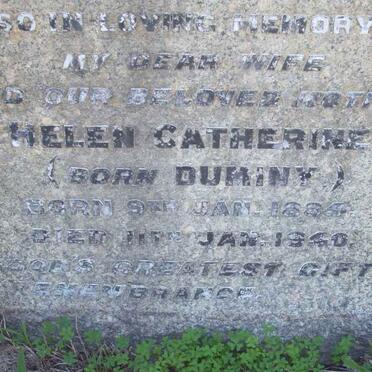 SO IN LOVING MEMORY
MY DEAR WIFE
D OUR BELOVED MOTH
HELEN CATHERINE
(BORN DUMINY)
BORN 9TH JAN. 1884
DIED 11TH JAN. 1940.
GOD'S GREATEST GIFT
EMEMBRANCE.